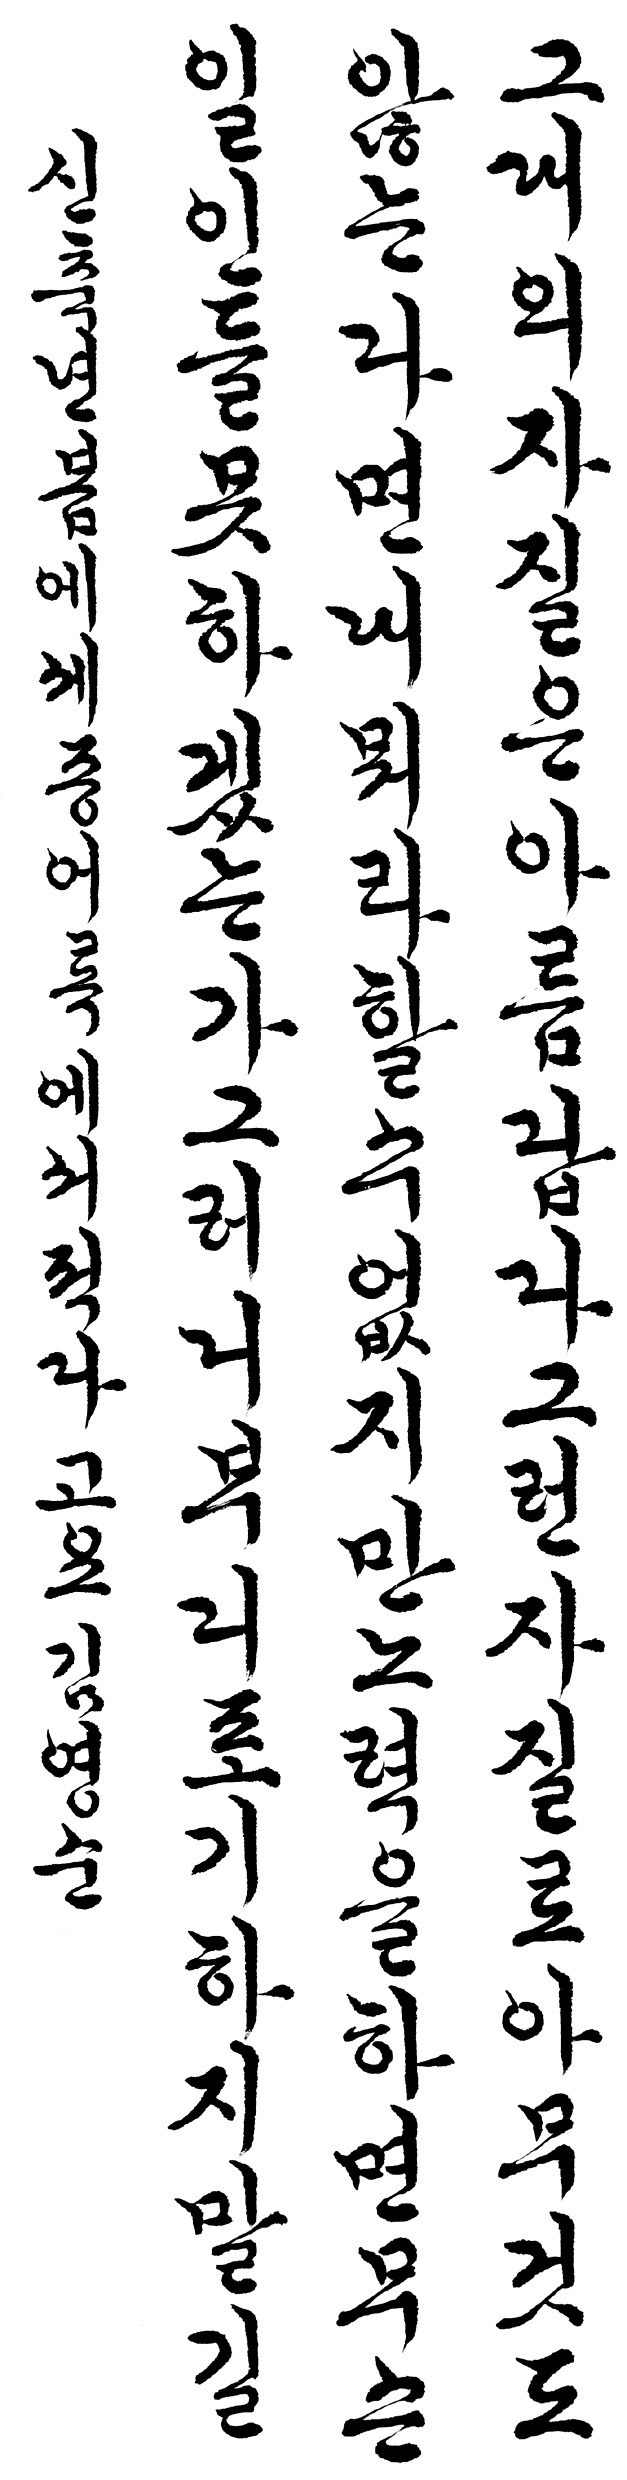 그대의자질은아름답다그런자질로아무것도
않는다면내뭐라할수없지만노력을하면무슨
일인들못하겠는가그러니부디포기하지말길
신축년봄에세종어록에서적다 고요 김영순